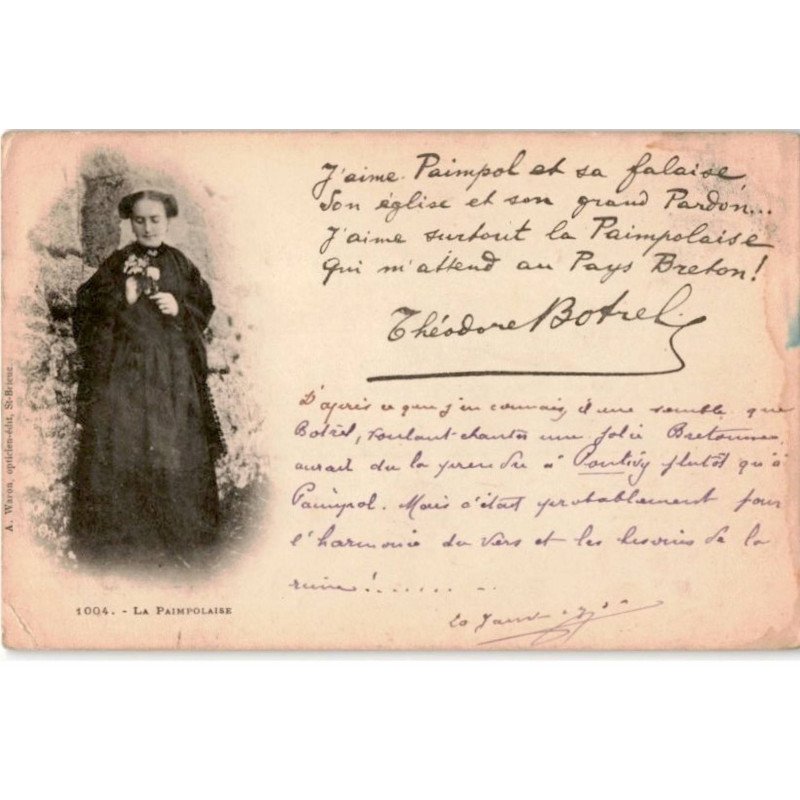 J'aime Paimpol et sa falaise
Son église et son grand Pardon...
J'aime surtout la Paimpolaise
Qui m'attend au Pays Breton!
Théodore Botrel
D'après ce que j'en connais, il me semble que
Botrel, voulant chanter une jolie Bretonne,
aurait du la prendre à Pontivy plutôt qu'à
Paimpol. Mais c'était probablement pour
l'harmonie du vers et les besoins de la
rime!........
20 Janv
A. Waron, opticien-édit, St-Brieuc.
1004. - LA PAIMPOLAISE